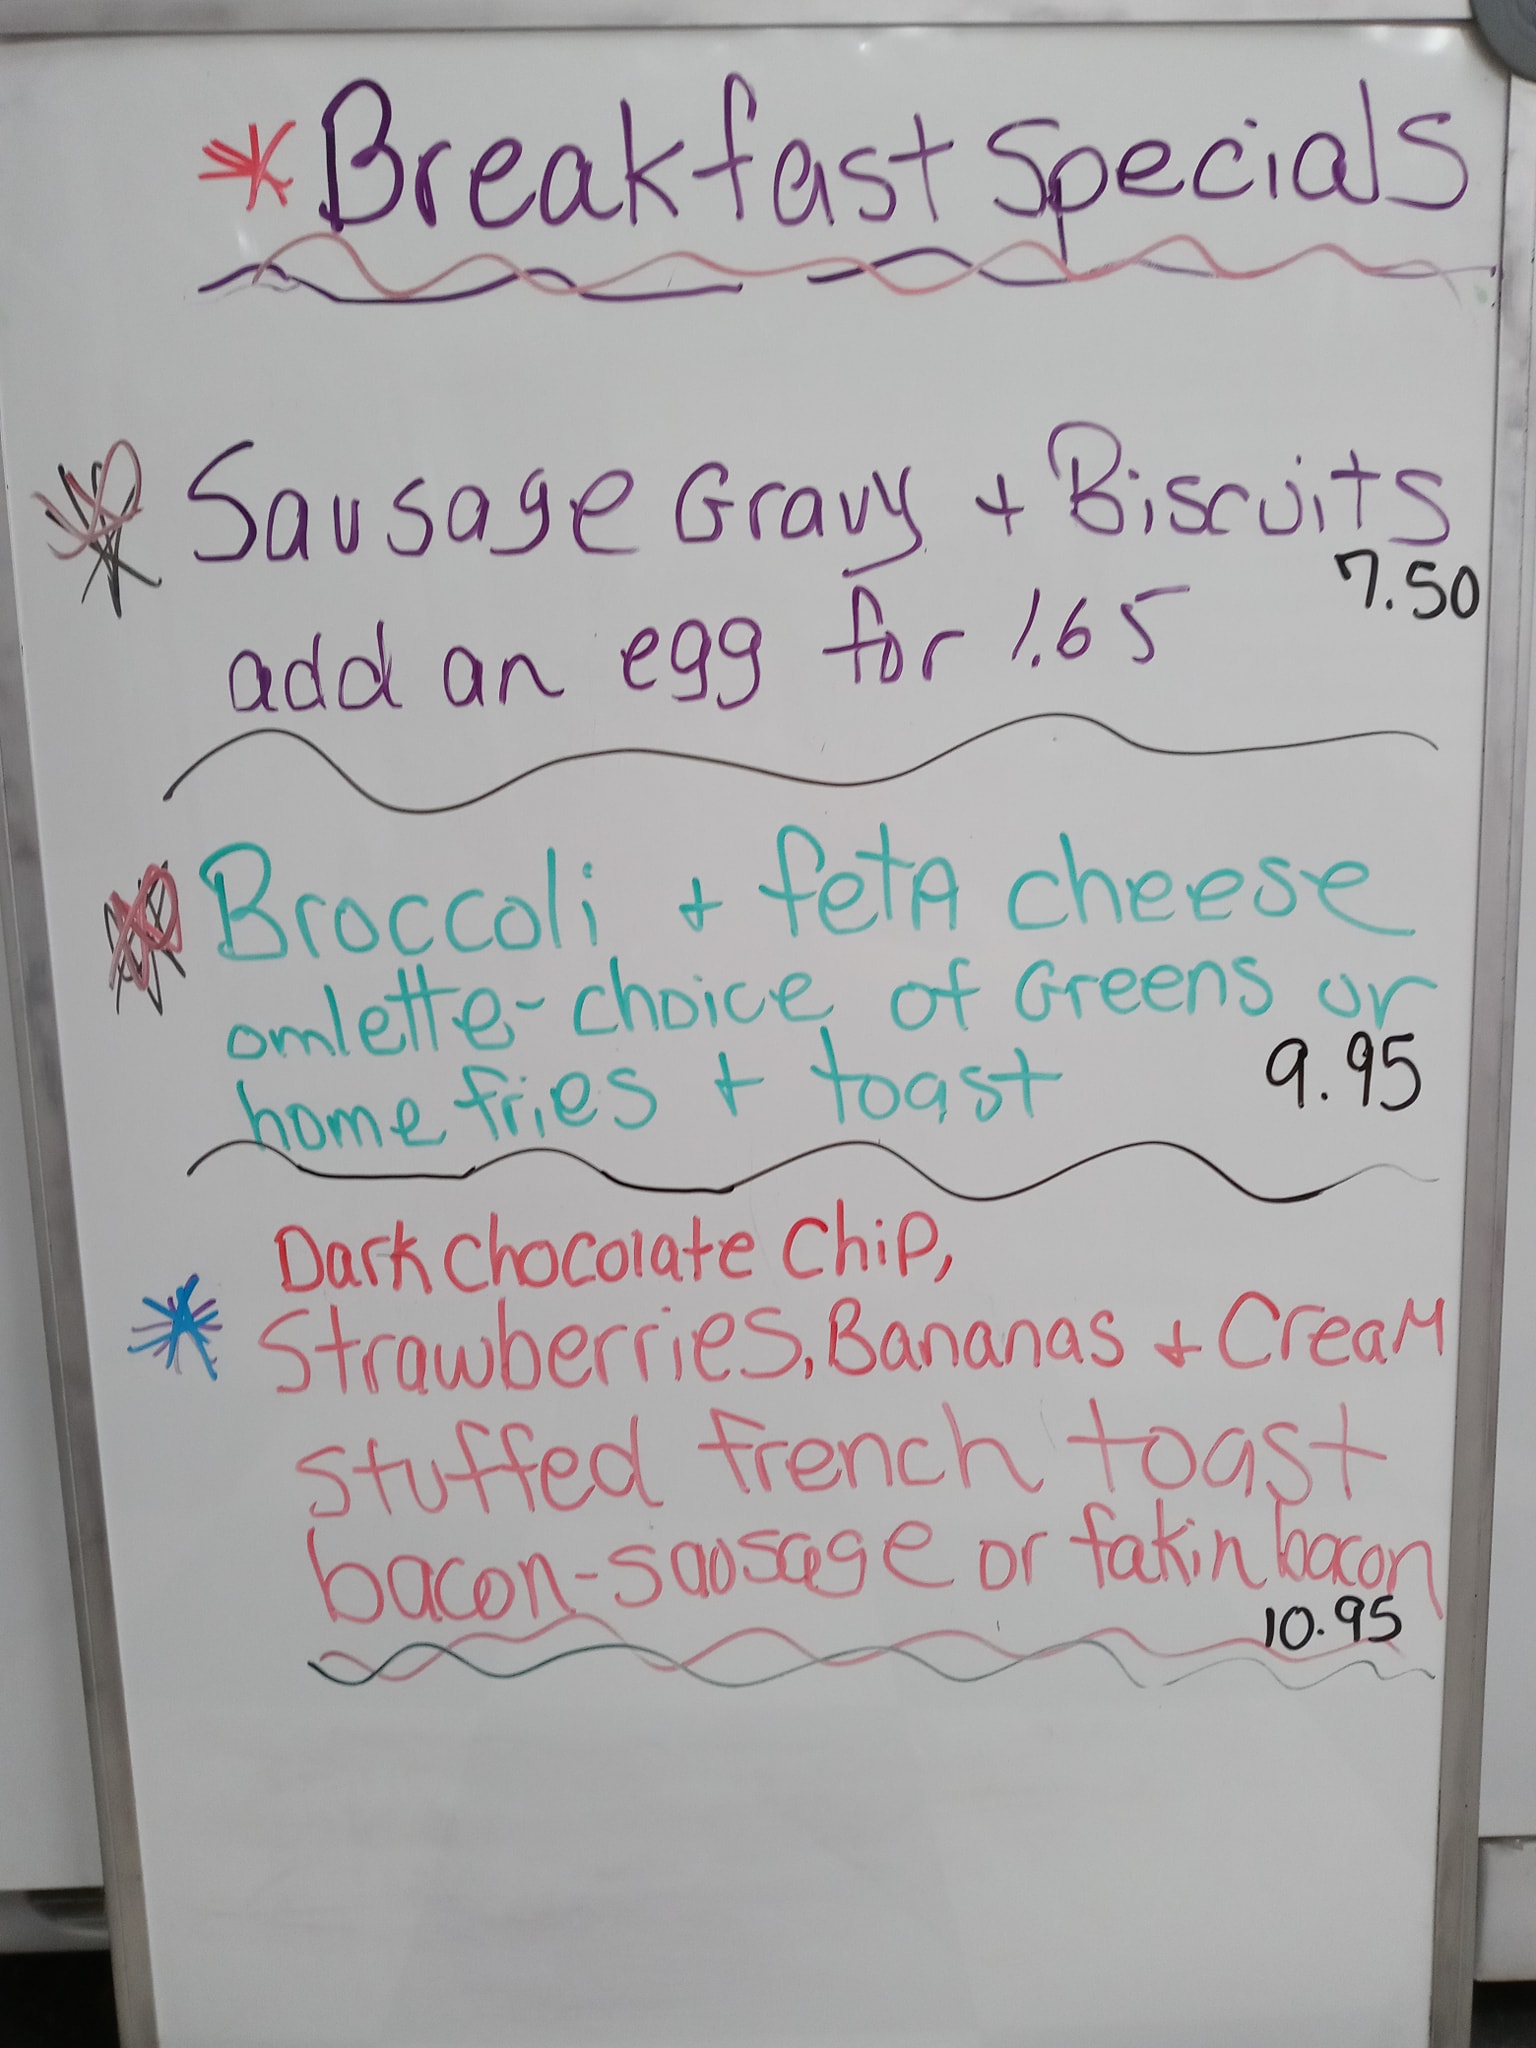 Breakfast Specials
Sausage Gravy + Biscuits
7.50
add an egg for 1.65
Broccoli + fetA cheese
omlette-choice of Greens or
home fries + toast 9.95
Dark Chocolate Chip,
Strawberries, Bananas + CreaM
stuffed french toast
bacon-sausage or fakin bacon
10.95